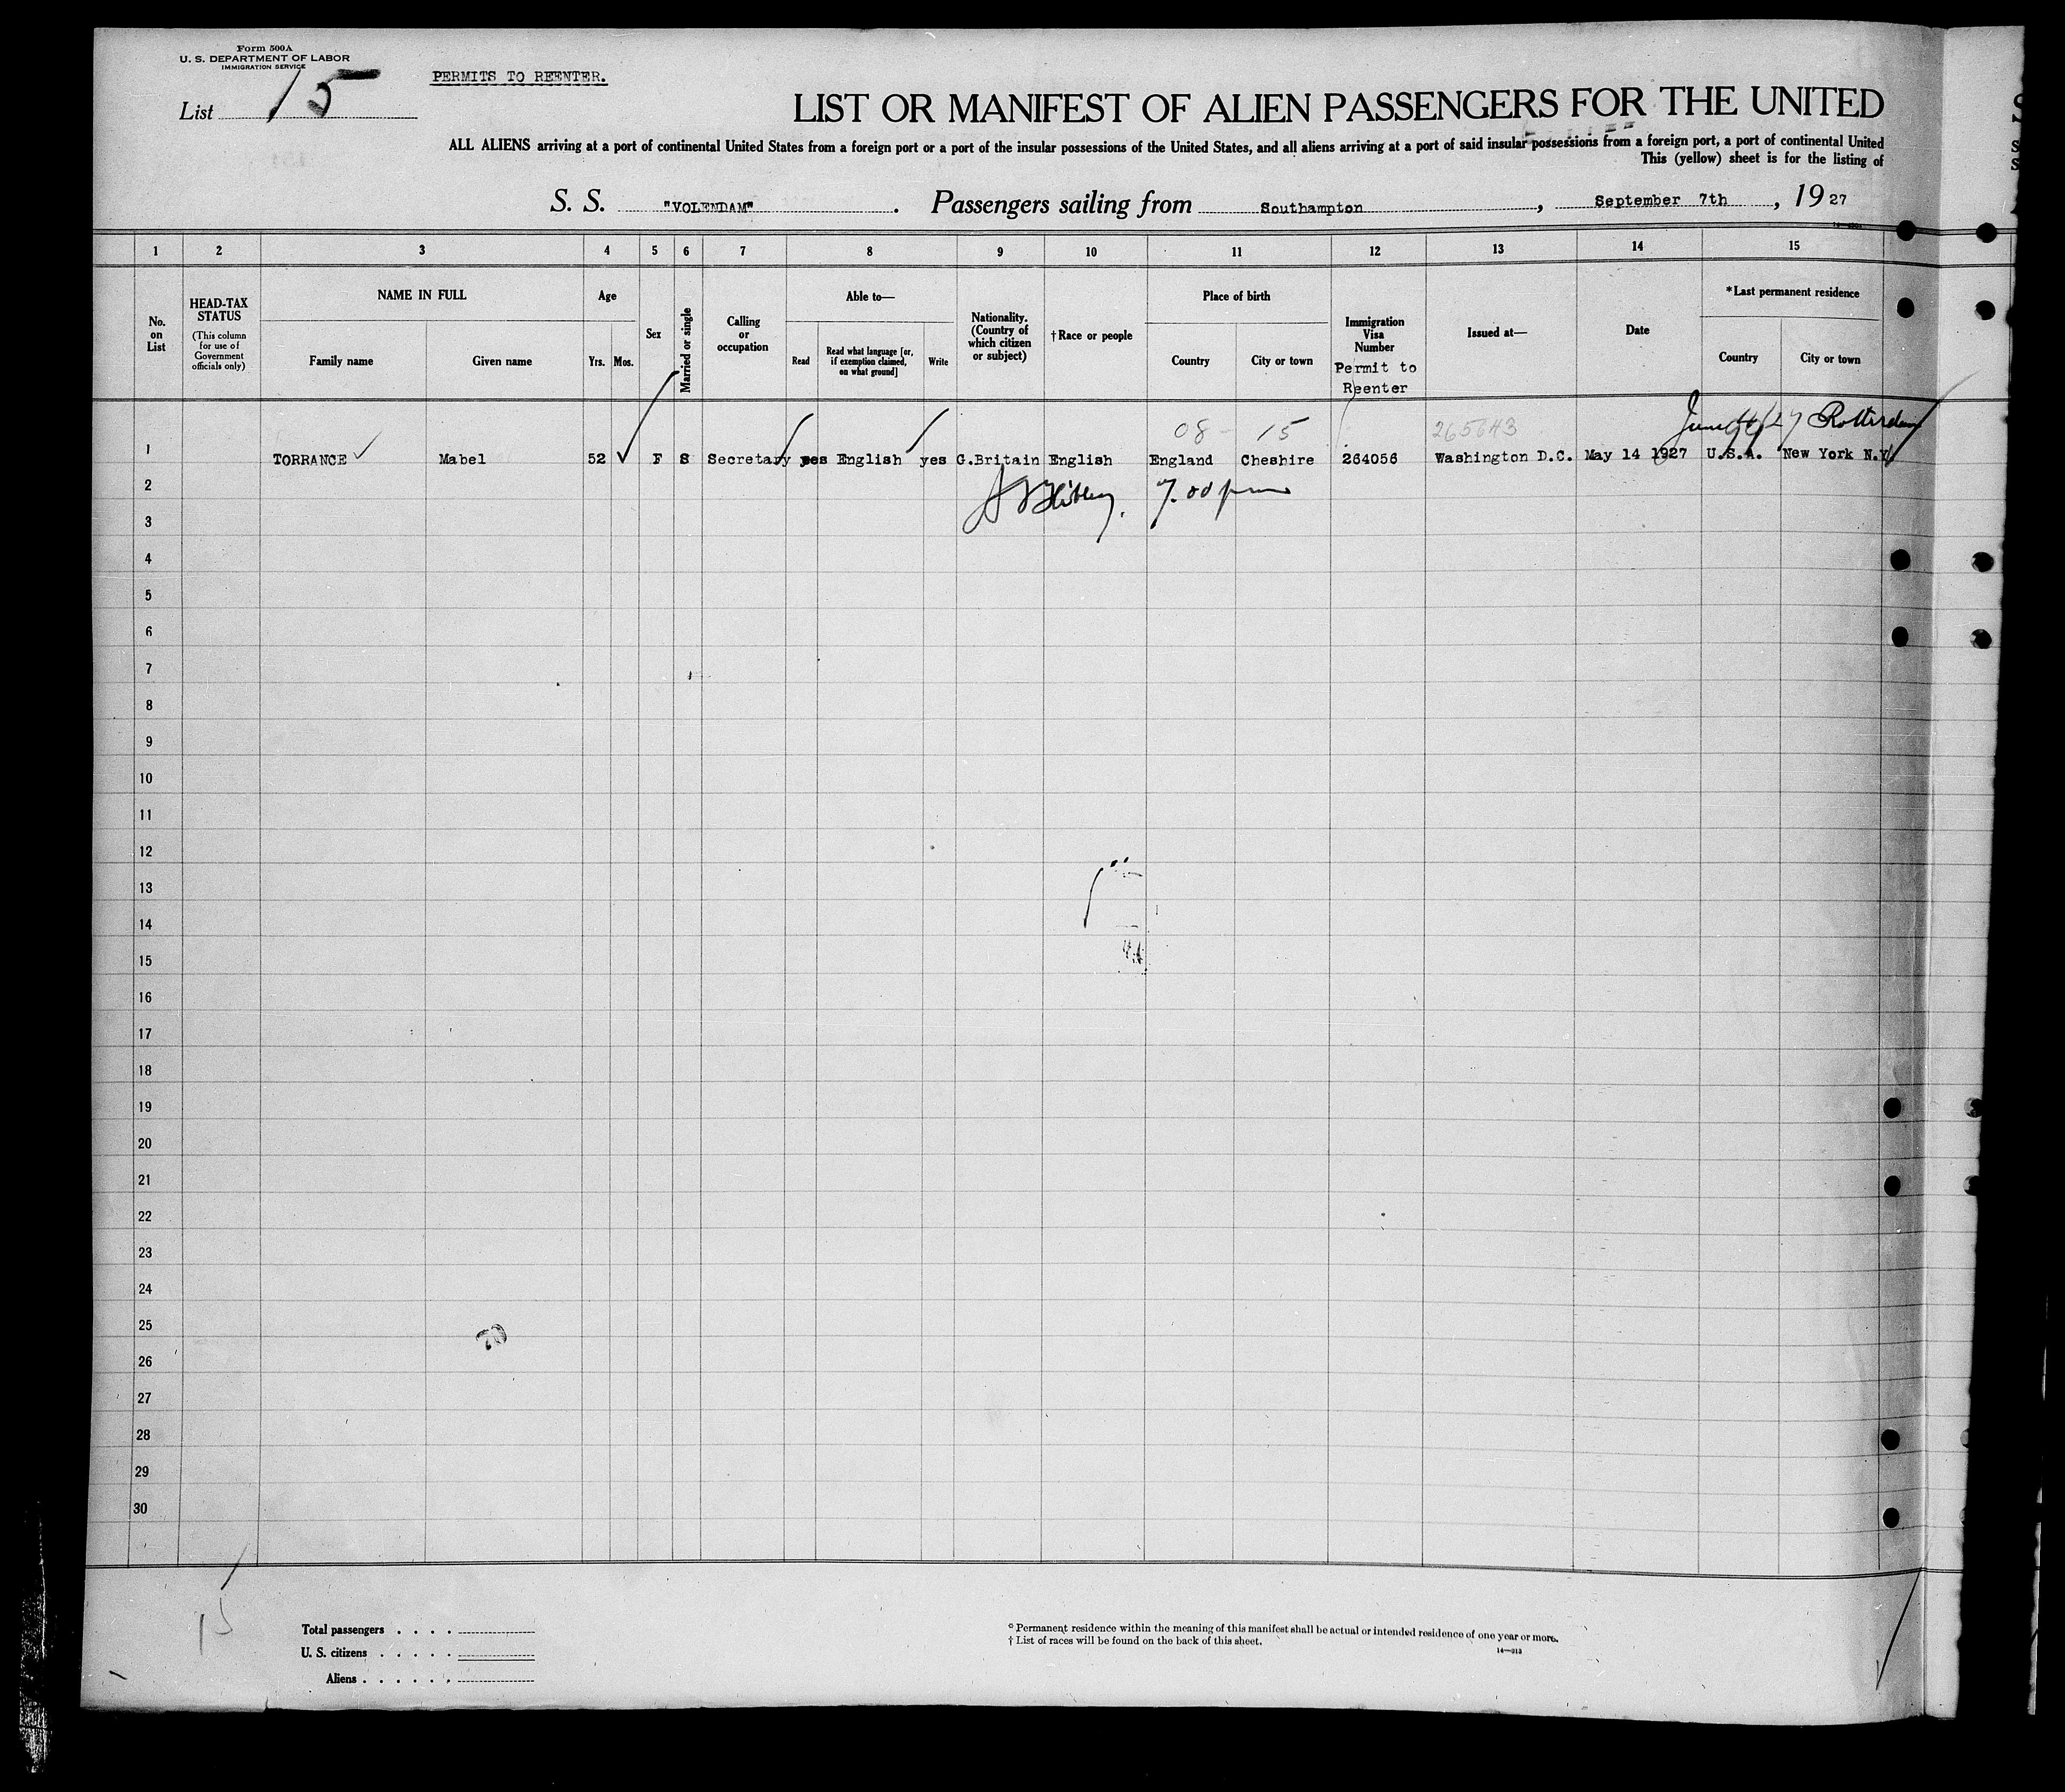 Form 500A
U. S. DEPARTMENT OF LABOR
IMMIGRATION SERVICE
List 15
PERMITS TO REENTER.
LIST OR MANIFEST OF ALIEN PASSENGERS FOR THE UNITED
ALL ALIENS arriving at a port of continental United States from a foreign port or a port of the insular possessions of the United States, and all aliens arriving at a port of said insular possessions from a foreign port, a port of continental United
This (yellow) sheet is for the listing of
S. S. "VOLENDAM". Passengers sailing from Southampton, September 7th, 1927
1 2 3 4 5 6 7 8 9 10 11 12 13 14 15
No. on List
HEAD-TAX STATUS
(This column for use of Government officials only)
NAME IN FULL
Family name Given name
Age
Yrs. Mos.
Sex
Married or single
Calling or occupation
Able to—
Read
Read what language [or, if exemption claimed, on what ground]
Write
Nationality. (Country of which citizen or subject)
† Race or people
Place of birth
Country City or town
Immigration Visa Number
Permit to Reenter
Issued at—
Date
* Last permanent residence
Country City or town
08 - 15 265643 Rotterdam
1 TORRANCE Mabel 52 F S Secretary yes English yes G.Britain English England Cheshire 264056 Washington D.C. May 14 1927 U.S.A. New York N.Y.
2 7.00 pm
3
4
5
6
7
8
9
10
11
12
13
14
15
16
17
18
19
20
21
22
23
24
25
70
26
27
28
29
30
15
Total passengers . . . .
U. S. citizens . . . . .
Aliens . . . . . .
* Permanent residence within the meaning of this manifest shall be actual or intended residence of one year or more.
† List of races will be found on the back of this sheet.
14—313